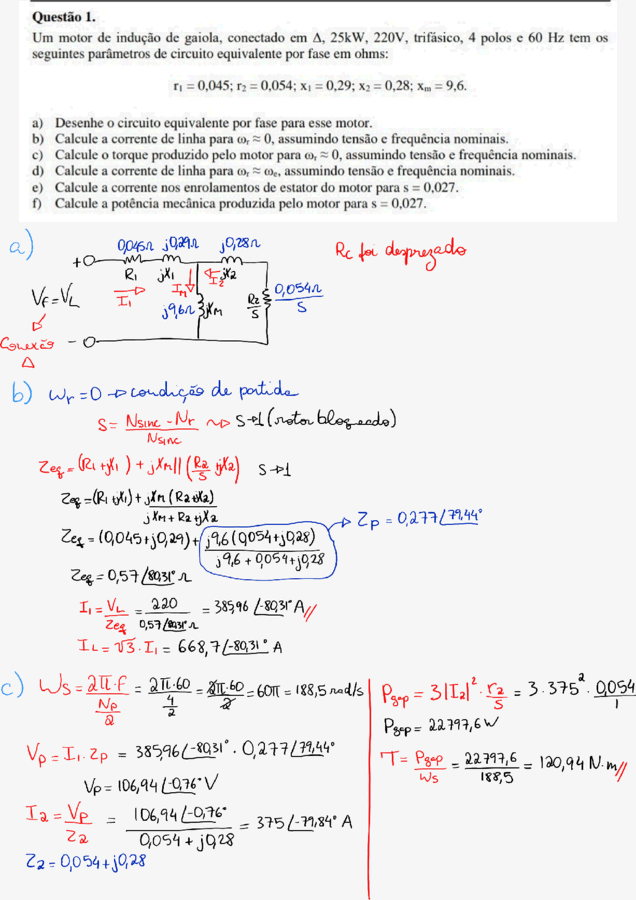 Questão 1.
Um motor de indução de gaiola, conectado em Δ, 25kW, 220V, trifásico, 4 polos e 60 Hz tem os
seguintes parâmetros de circuito equivalente por fase em ohms:
r₁ = 0,045; r₂ = 0,054; x₁ = 0,29; x₂ = 0,28; xₘ = 9,6.
a) Desenhe o circuito equivalente por fase para esse motor.
b) Calcule a corrente de linha para ωᵣ ≈ 0, assumindo tensão e frequência nominais.
c) Calcule o torque produzido pelo motor para ωᵣ ≈ 0, assumindo tensão e frequência nominais.
d) Calcule a corrente de linha para ωᵣ ≈ ωₑ, assumindo tensão e frequência nominais.
e) Calcule a corrente nos enrolamentos de estator do motor para s = 0,027.
f) Calcule a potência mecânica produzida pelo motor para s = 0,027.
a)
0,045Ω j0,29Ω j0,28Ω
Rc foi desprezado
+
R1 jX1 I2 jX2
I1 Im
VF=VL
j9,6Ω jXM R2/S 0,054Ω/S
Conexão
Δ
-
b) Wr=0 → condição de partida
S = Nsinc - Nr / Nsinc ⤳ S→1 (rotor bloqueado)
Zeq = (R1+jX1) + jXM || (R2/S jX2) S→1
Zeq = (R1+jX1) + jXM (R2+jX2) / jXM + R2 + jX2
Zeq = (0,045+j0,29) + j9,6 (0,054+j0,28) / j9,6 + 0,054 + j0,28 → Zp = 0,277∠79,44°
Zeq = 0,57∠80,31° Ω
I1 = VL/Zeq = 220 / 0,57∠80,31°Ω = 385,96∠-80,31° A //
IL = √3 · I1 = 668,7∠-80,31° A
c) Ws = 2π·f / Np/2 = 2π·60 / 4/2 = 2π·60 / 2 = 60π = 188,5 rad/s
Vp = I1 · Zp = 385,96∠-80,31° · 0,277∠79,44°
Vp = 106,94∠-0,76° V
I2 = Vp/Z2 = 106,94∠-0,76° / 0,054 + j0,28 = 375∠-79,84° A
Z2 = 0,054 + j0,28
Pgap = 3|I2|² · r2/S = 3 · 375² · 0,054/1
Pgap = 22797,6 W
T = Pgap/Ws = 22797,6 / 188,5 = 120,94 N·m //